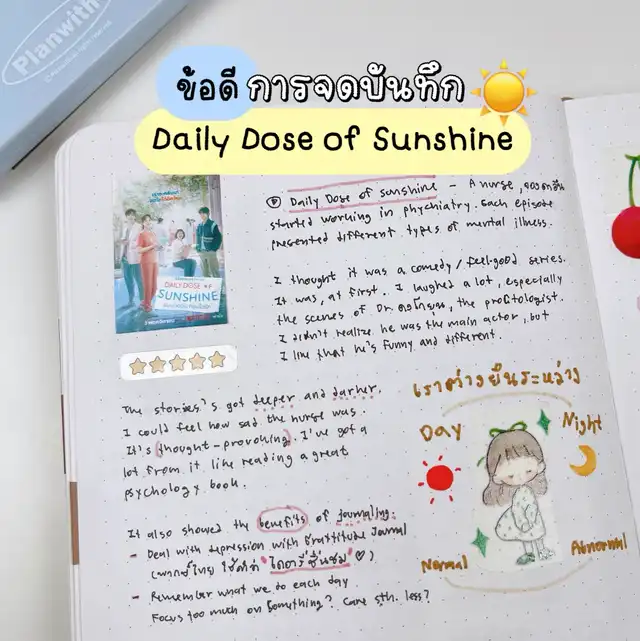 Planwith
ข้อดี การจดบันทึก
Daily Dose of Sunshine
Daily Dose of sunshine - A nurse,
started working in phychiatry. Each episode
presented different types of mental illness.
DAILY DOSE OF
SUNSHINE
I thought it was a comedy / feel-good series.
It was, at first. I laughed a lot, especially
the scenes of Dr. the proctologist.
I didn't realize he was the main actor, but
I like that he's funny and different.
The stories's got deeper and darker.
I could feel how sad the nurse was.
It's thought-provoking. I've got a
lot from it like reading a great
psychology book.
It also showed the benefits of journaling.
- Deal with depression with Grattitude Journal
(พากย์ไทย ใช้คำว่า "ไดอารี่ชื่นชม" ♡)
- Remember what we do each day
Focus too much on something? Care sth. less?
เราต่างยืนระหว่าง
Day
Night
Normal
Abnormal